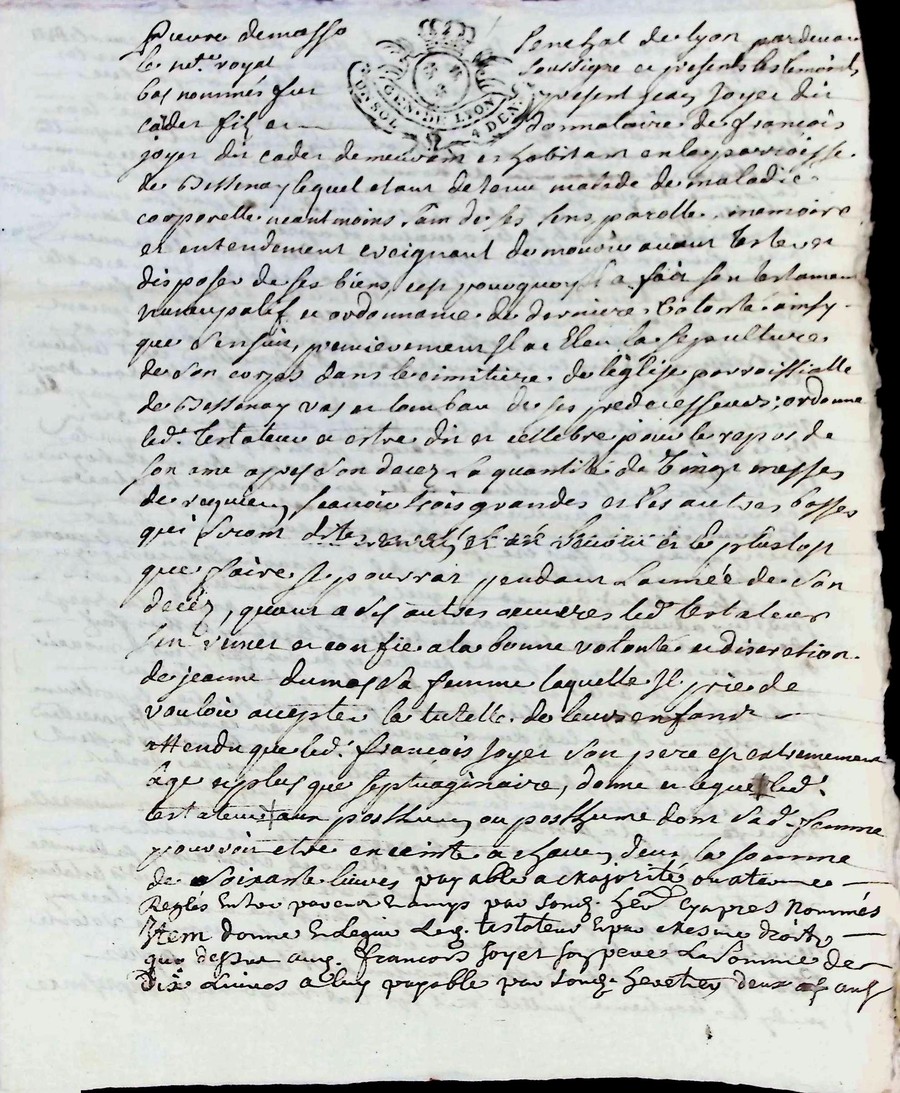 Pierre demasso senechal de lyon pardevant
le not.e royal soussigne et presents les temoins
bas nommés fut present jean joyet dit
cadet filz et donnataire de françois
joyet dit cadet demeurant et habitant en la parroisse
de Bessenay lequel etant detenu malade de maladie
corporelle neantmoins sain de ses sens parolle memoire
et entendement craignant de mourir avant tester et
disposer de ses biens, cest pourquoy il a fait son testament
nuncupatif et ordonnance de derniere volonte ainsy
que sensuit, premierement il a Eleu la sepulture
de son corps dans le cimitiere de leglise parroissialle
de Bessenay vas et tombau de ses predecesseurs; ordonne
led. testateur a estre dit et cellebre pour le repos de
son ame apres son decez la quantité de vingt messes
de requiem scavoir trois grandes et les autres basses
qui seront dites et le plustot
que faire se pourrat pendant lannée de son
decez, quant a ses autres oeuvres led. testateur
sen remet et confie a la bonne volonté et discretion
de jeanne dumas sa femme laquelle il prie de
vouloir accepter la tutelle de leurs enfants
attendu que led. françois joyet son pere est extremement
age et plus que septuaginaire, donne et legue led.
testateur aux posthumes ou posthume dont sad. femme
pourroit etre enceinte a chacun deux la somme
de soixante livres payable a majorité ou a terme
Reglés Entre parents et amys par son heritier Cyapres Nommés
Item donne et Legue led. testateur et par mesme droit
que dessus aud. francois Joyet son pere La Somme de
dix Livres a luy payable par son heretier deux ans
GEN. DE LYON
UN SOL 4 DEN.